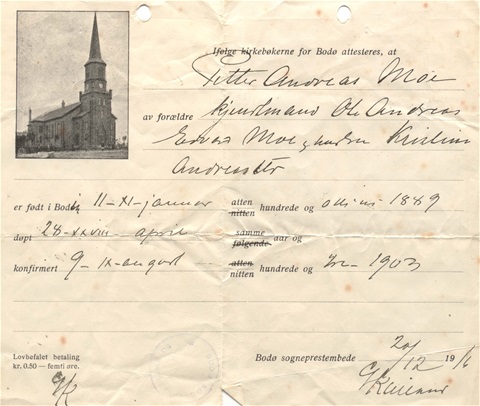 Ifølge kirkebøkerne for Bodø attesteres, at
Petter Andreas Moe
av forældre Ole Andreas
Edvard Moe og hustru Kristine
er født i Bodø 11-XI-januar atten nitten hundrede og 1889
døpt 28-XXVIII-april samme følgende aar og
konfirmert 9-IX-august atten nitten hundrede og tre-1903
Lovbefalet betaling
kr. 0.50 — femti øre.
Bodø sogneprestembede 20/12 1916